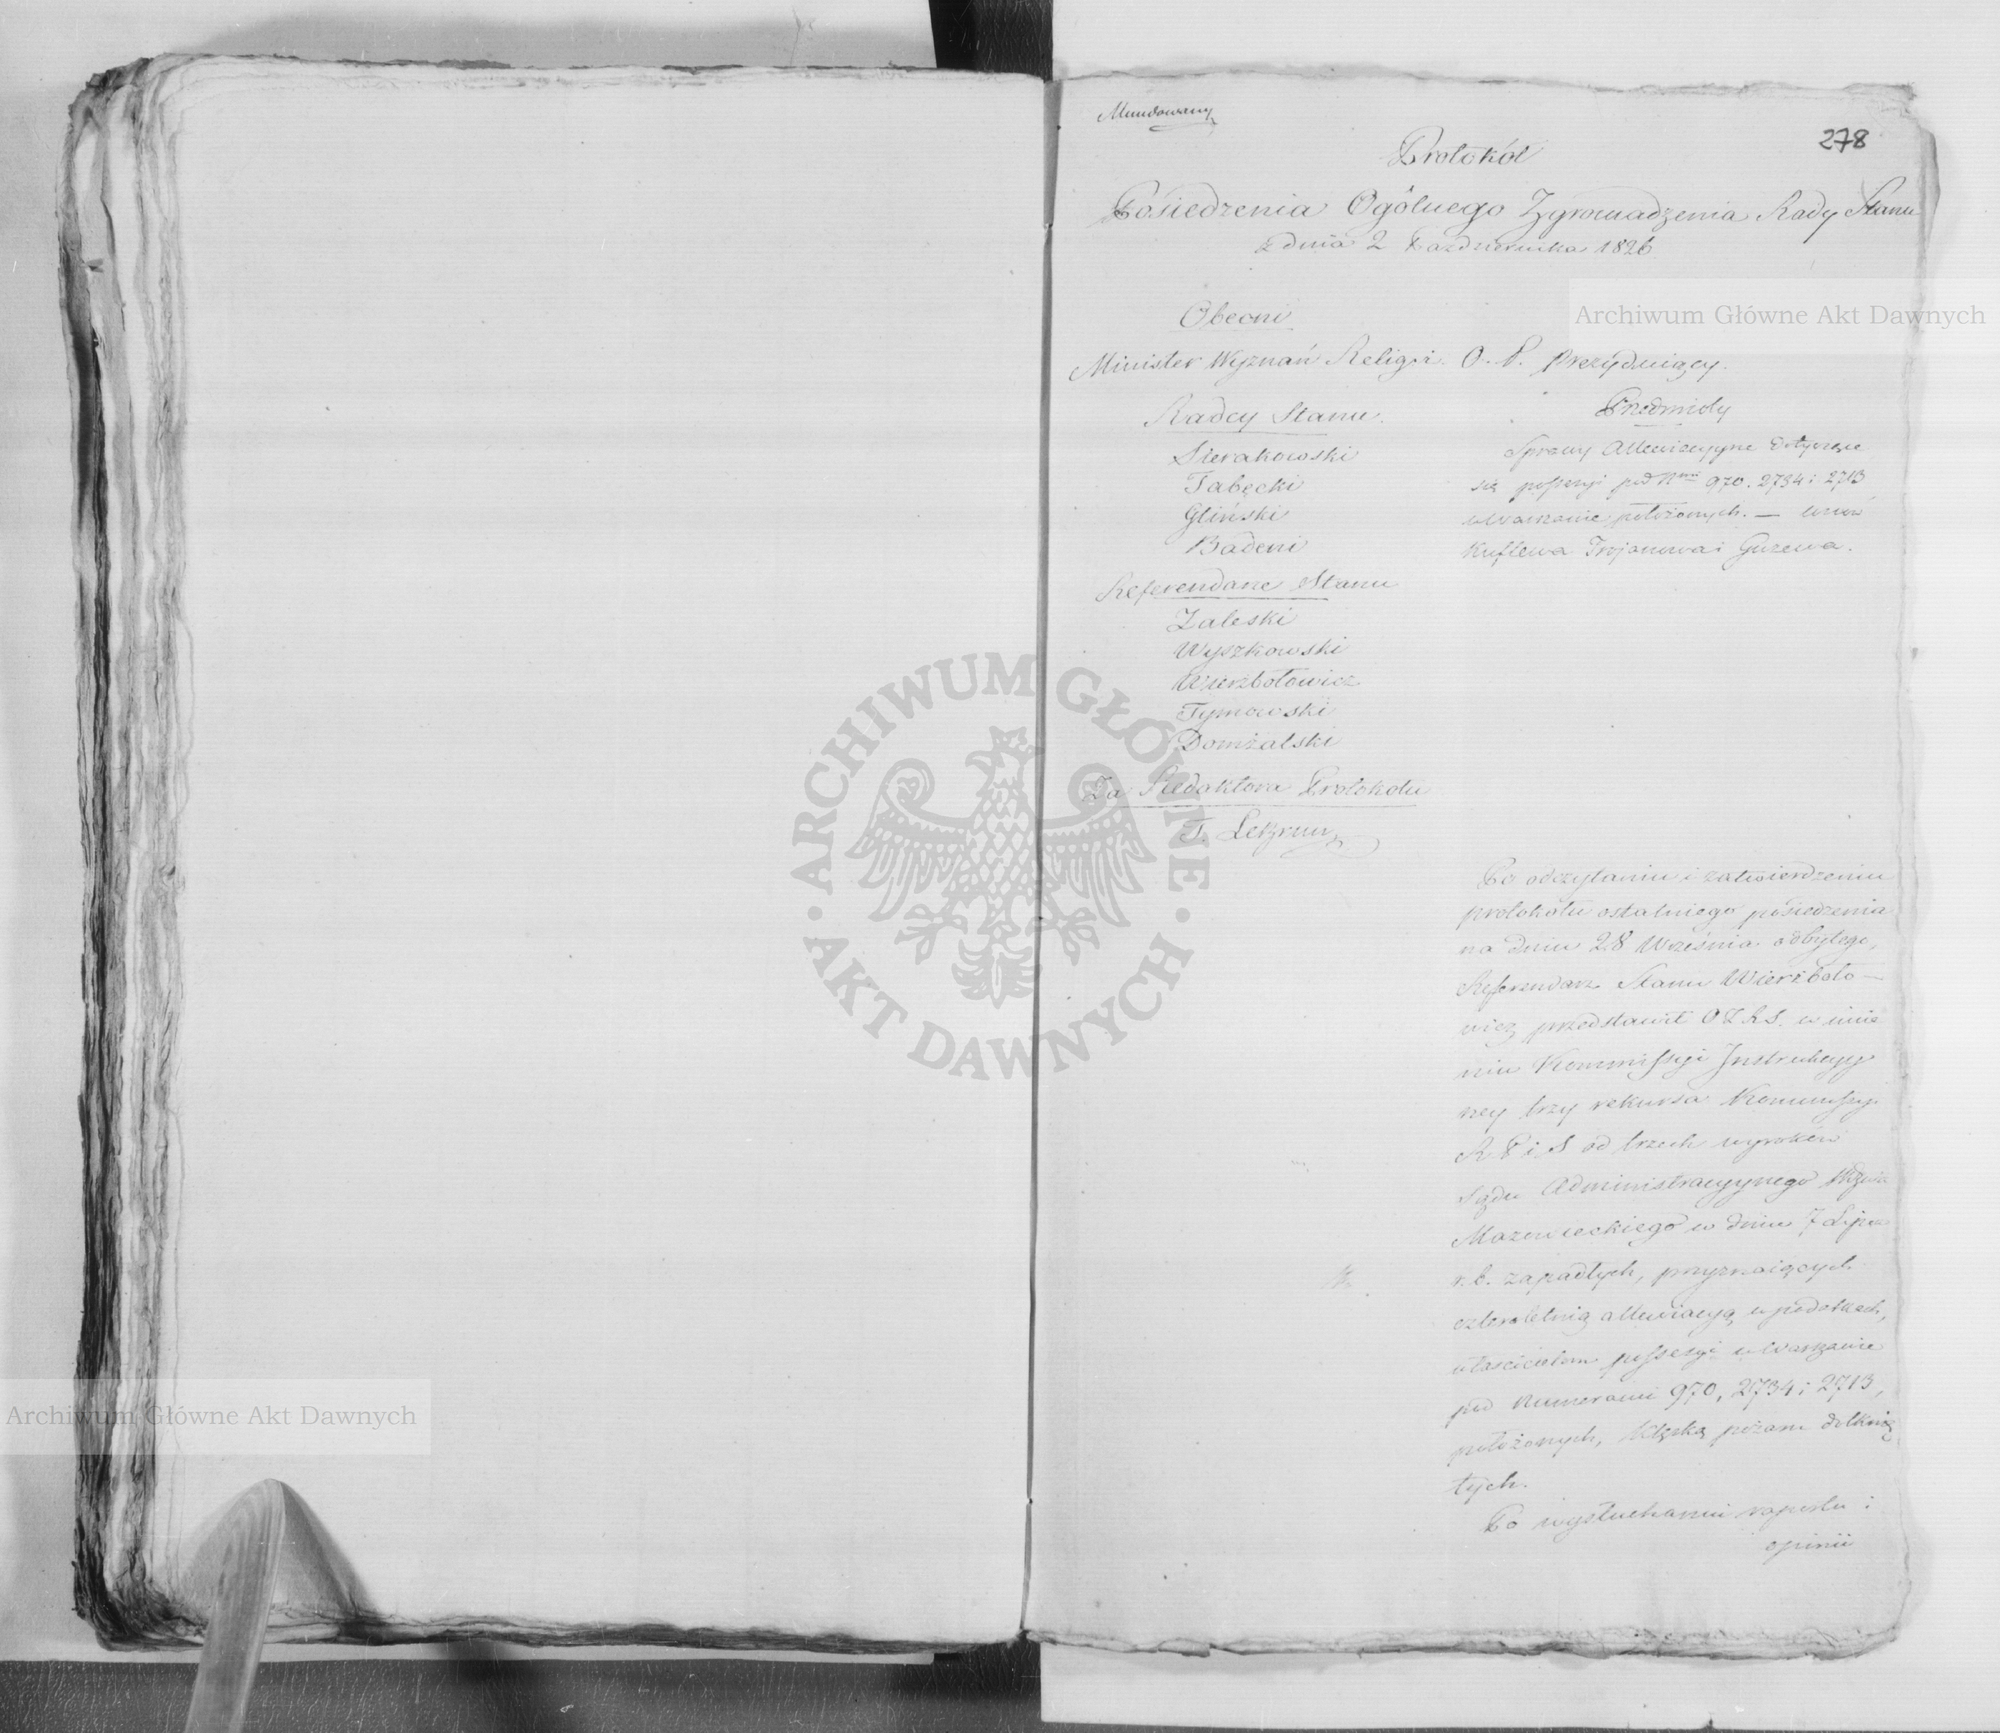 Mundowany
278
Protokół
Posiedzenia Ogólnego Zgromadzenia Rady Stanu
z dnia 2 Października 1826
Obecni
Minister Wyznań Religii O. P. Prezyduiący.
Radcy Stanu.
Sierakowski
Tabęcki
Gliński
Badeni
Referendarze Stanu
Zaleski
Wyszkowski
Wierzbołowicz
Tymowski
Domżalski
Za Redaktora Protokołu
T. Lebrun
Przedmioty
Sprawy Allewiacyjne dotyczące
się possessyi pod Nrmi 970. 2734 i 2713
w Warszawie położonych. —
Kuflewa Trojanowa i Guzewa.
Po odczytaniu i zatwierdzeniu
protokołu ostatniego posiedzenia
na dniu 28 Września odbytego,
Referendarz Stanu Wierzboło-
wicz przedstawił O Z R S. w imie
niu Kommissyi Instrukcyy
ney trzy rekursa Kommissyi
R P i S od trzech wyroków
Sądu Administracyynego Wdztwa
Mazowieckiego w dniu 7 Lipca
r. b. zapadłych, przyznaiących
czteroletnią allewiacyą w podatkach,
właścicielom possessyi w Warszawie
pod Numerami 970, 2734 i 2713,
położonych, klęską pożaru dotknię
tych.
Po wysłuchaniu raportu i
opinii
Archiwum Główne Akt Dawnych
Archiwum Główne Akt Dawnych
ARCHIWUM GŁÓWNE · AKT DAWNYCH ·